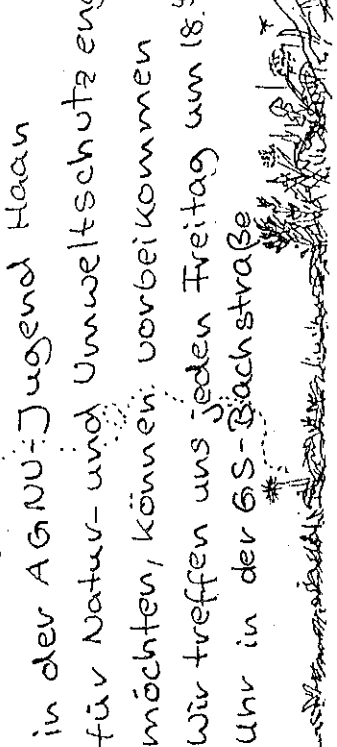 in der AGNU-Jugend Haan
für Natur- und Umweltschutz eng
möchten, können vorbeikommen
Wir treffen uns jeden Freitag um 18.
Uhr in der GS-Bachstraße